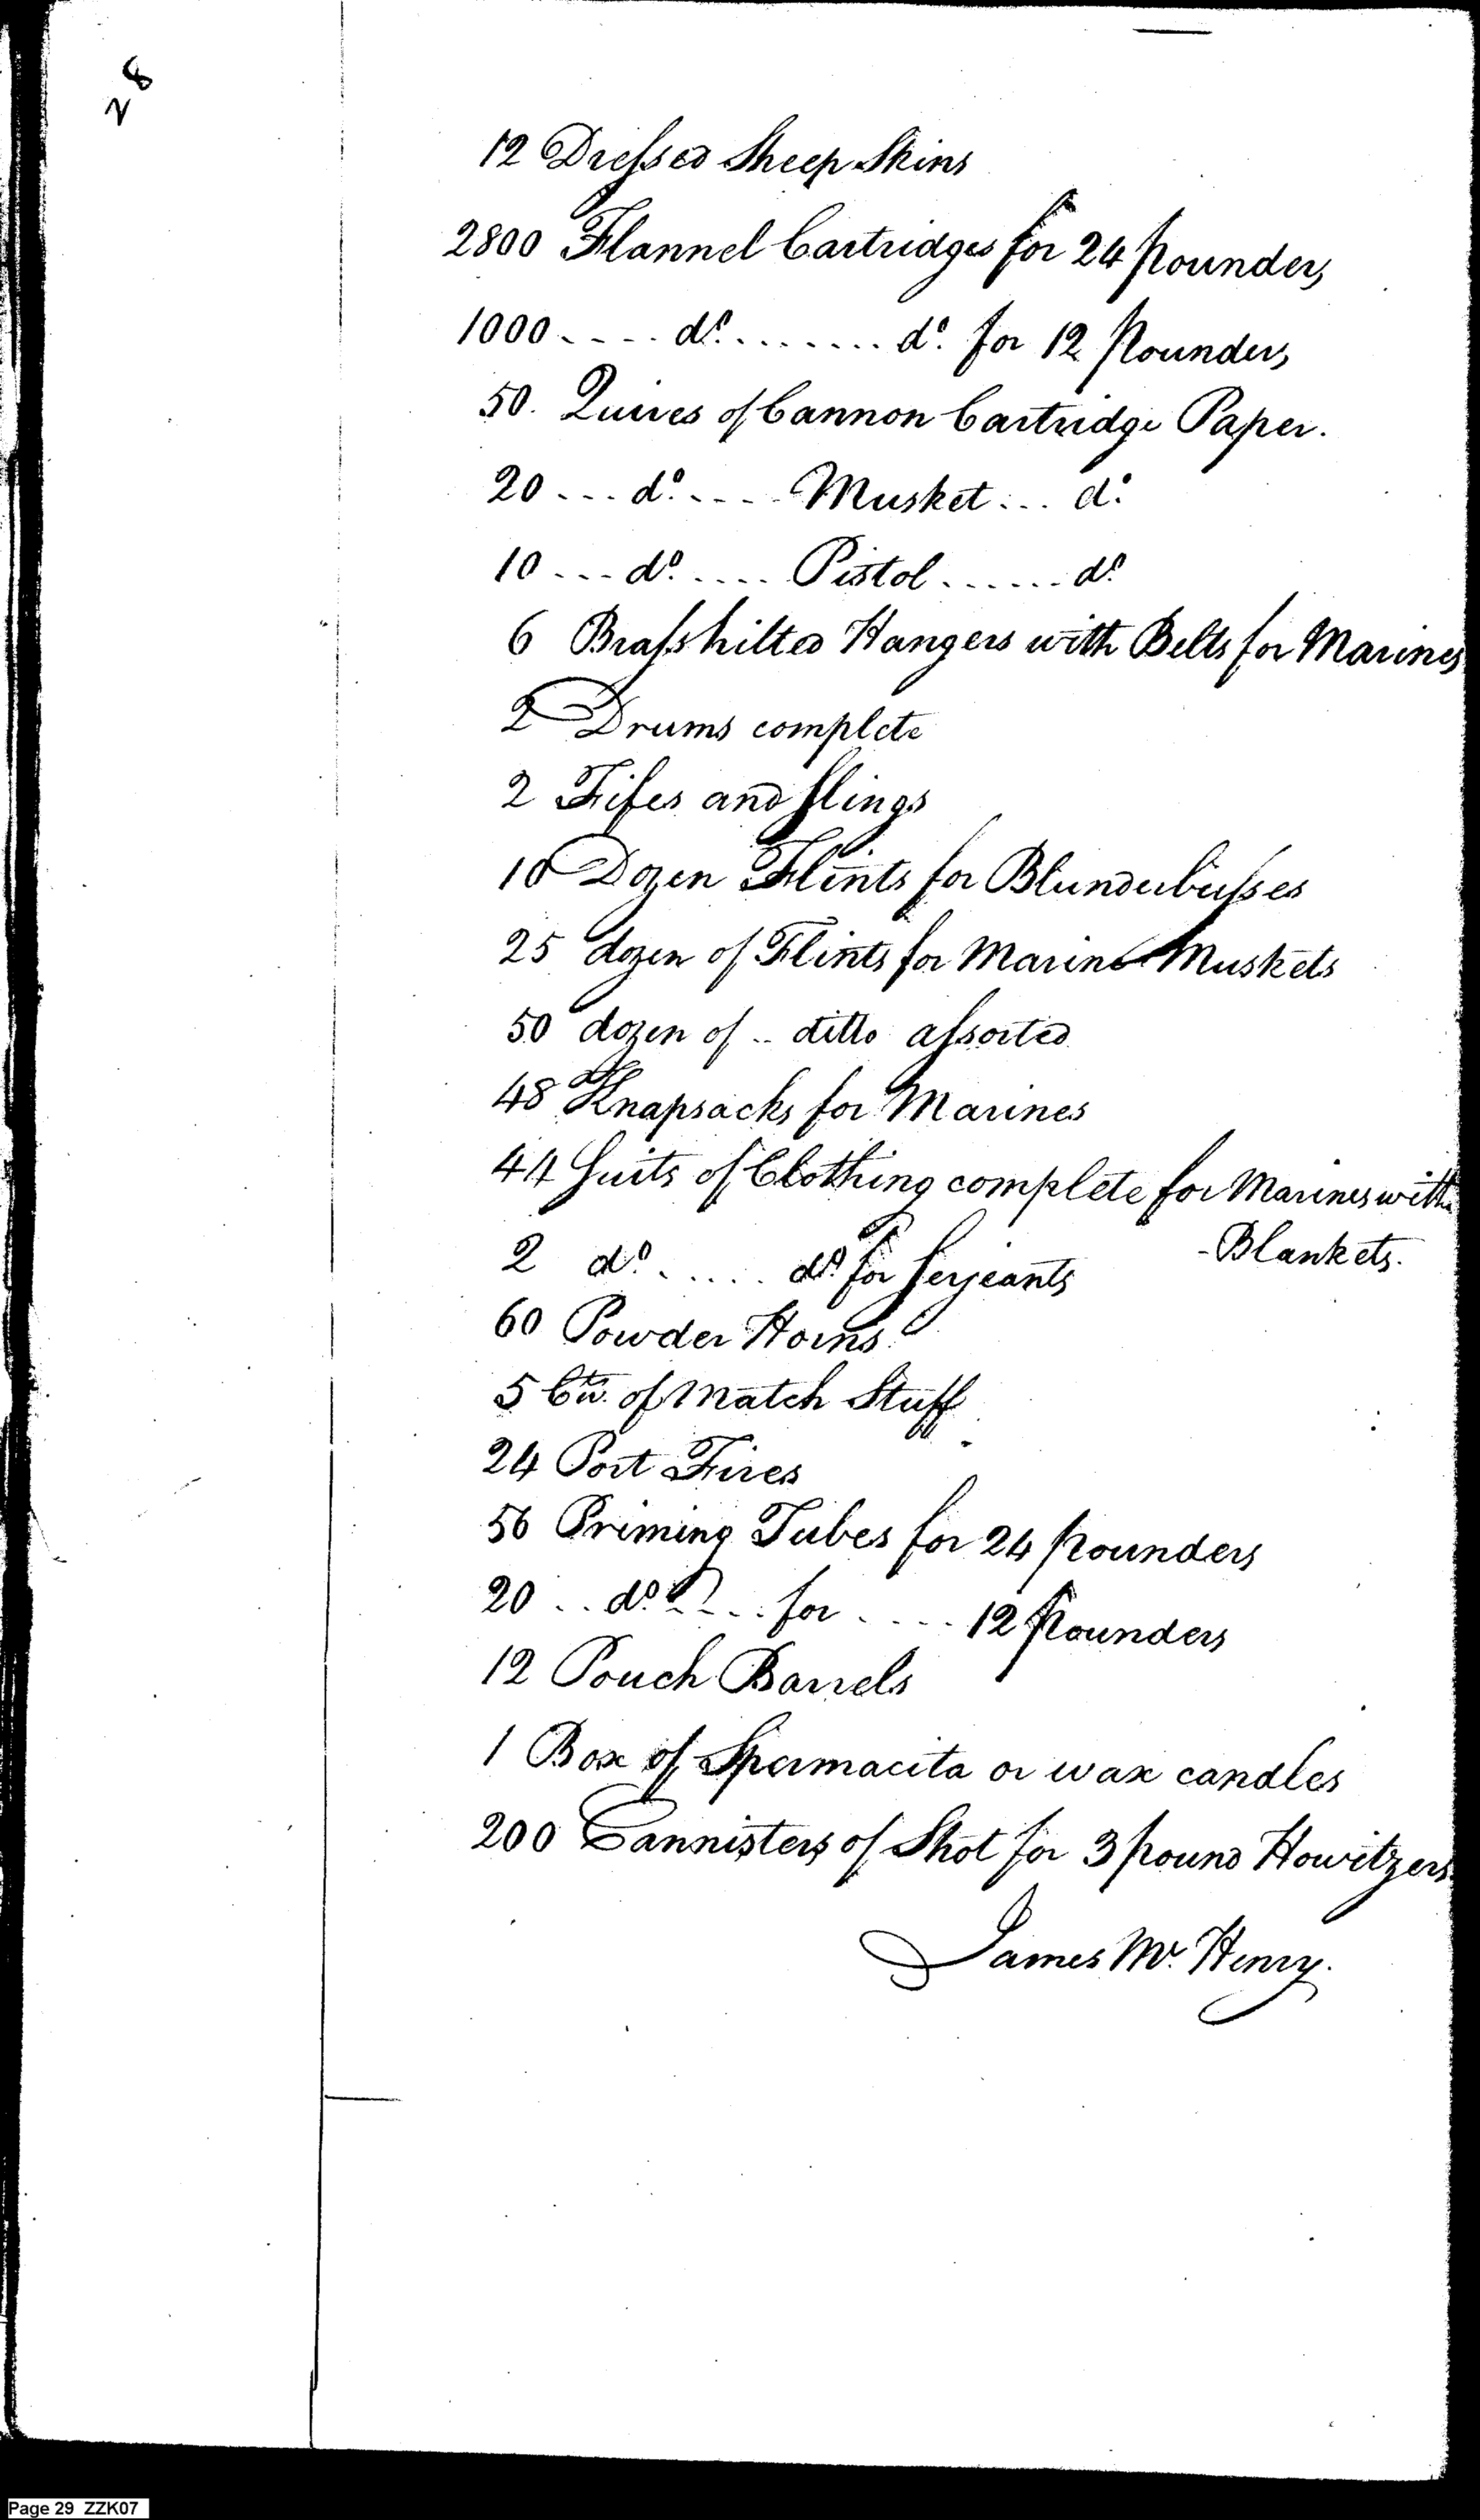 28
12 Dressed Sheep Skins
2800 Flannel Cartridges for 24 pounders
1000 .... do. ........ do. for 12 pounders
50. Quires of Cannon Cartridge Paper.
20 ... do. .... Musket ... do.
10 ... do. .... Pistol ...... do.
6 Brass hilted Hangers with Belts for Marines
2 Drums complete
2 Fifes and slings
10 Dozen Flints for Blunderbusses
25 dozen of Flints for Marine Muskets
50 dozen of .. ditto assorted
48 Knapsacks for Marines
44 Suits of Clothing complete for Marines with
- Blankets.
2 do. ..... do. for Serjeants
60 Powder Horns
5 Cts. of Match Stuff
24 Port Fires
56 Priming Tubes for 24 pounders
20 .. do. .... for .... 12 pounders
12 Pouch Barrels
1 Box of Spermacita or wax candles
200 Cannisters of Shot for 3 pound Howitzers
James Mc. Henry.
Page 29 ZZK07